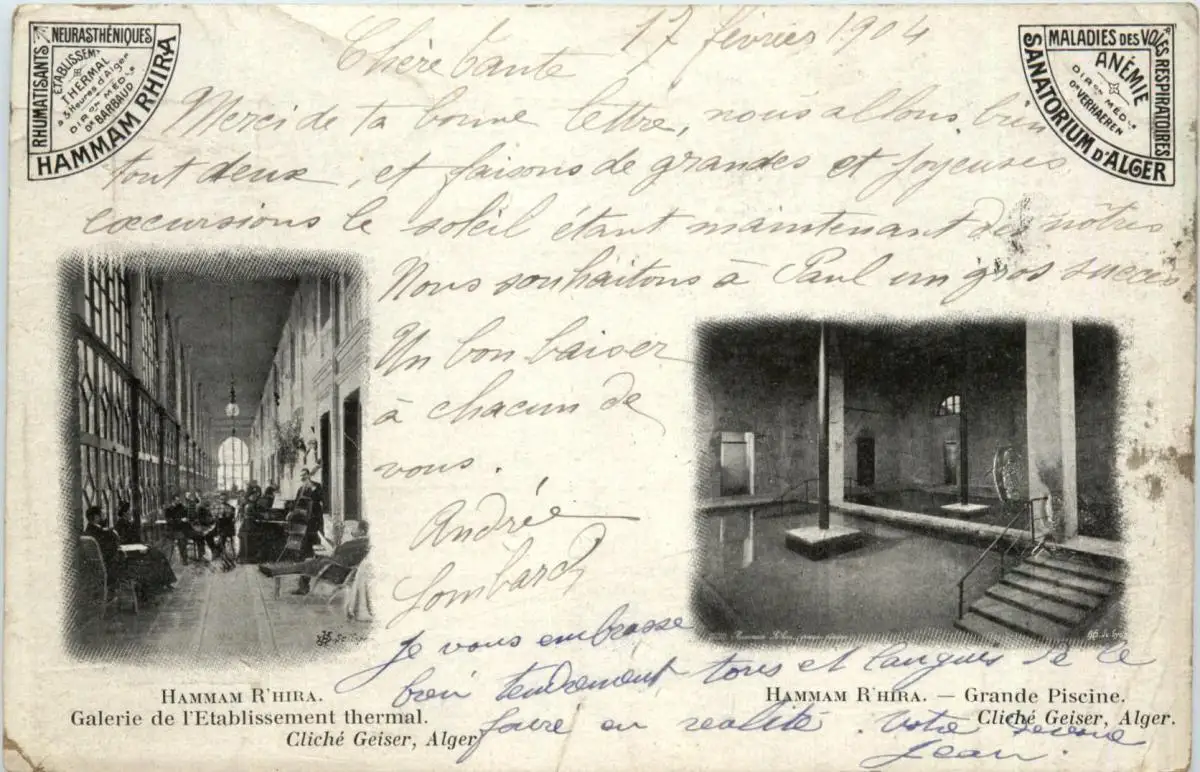 NEURASTHÉNIQUES
RHUMATISANTS
ETABLISSEMT
THERMAL
à 3 Heures d'Alger
DIRON MÉDLE
DR BARBAUD
HAMMAM RHIRA
MALADIES DES VOIES RESPIRATOIRES
ANÉMIE
DIRON MÉDLE
DR VERHAEREN
SANATORIUM D'ALGER
17 février 1904
Chère tante
Merci de ta bonne lettre, nous allons bien
tout deux, et faisons de grandes et joyeuses
excursions le soleil étant maintenant des nôtres
Nous souhaitons à Paul un gros succès
Un bon baiser
à chacun de
vous.
Andrée
Lombard
Je vous embrasse
bien tendrement tous et languis de le
faire en realité. Votre
Jean.
HAMMAM R'HIRA.
Galerie de l'Etablissement thermal.
Cliché Geiser, Alger
HAMMAM R'HIRA. — Grande Piscine.
Cliché Geiser, Alger.